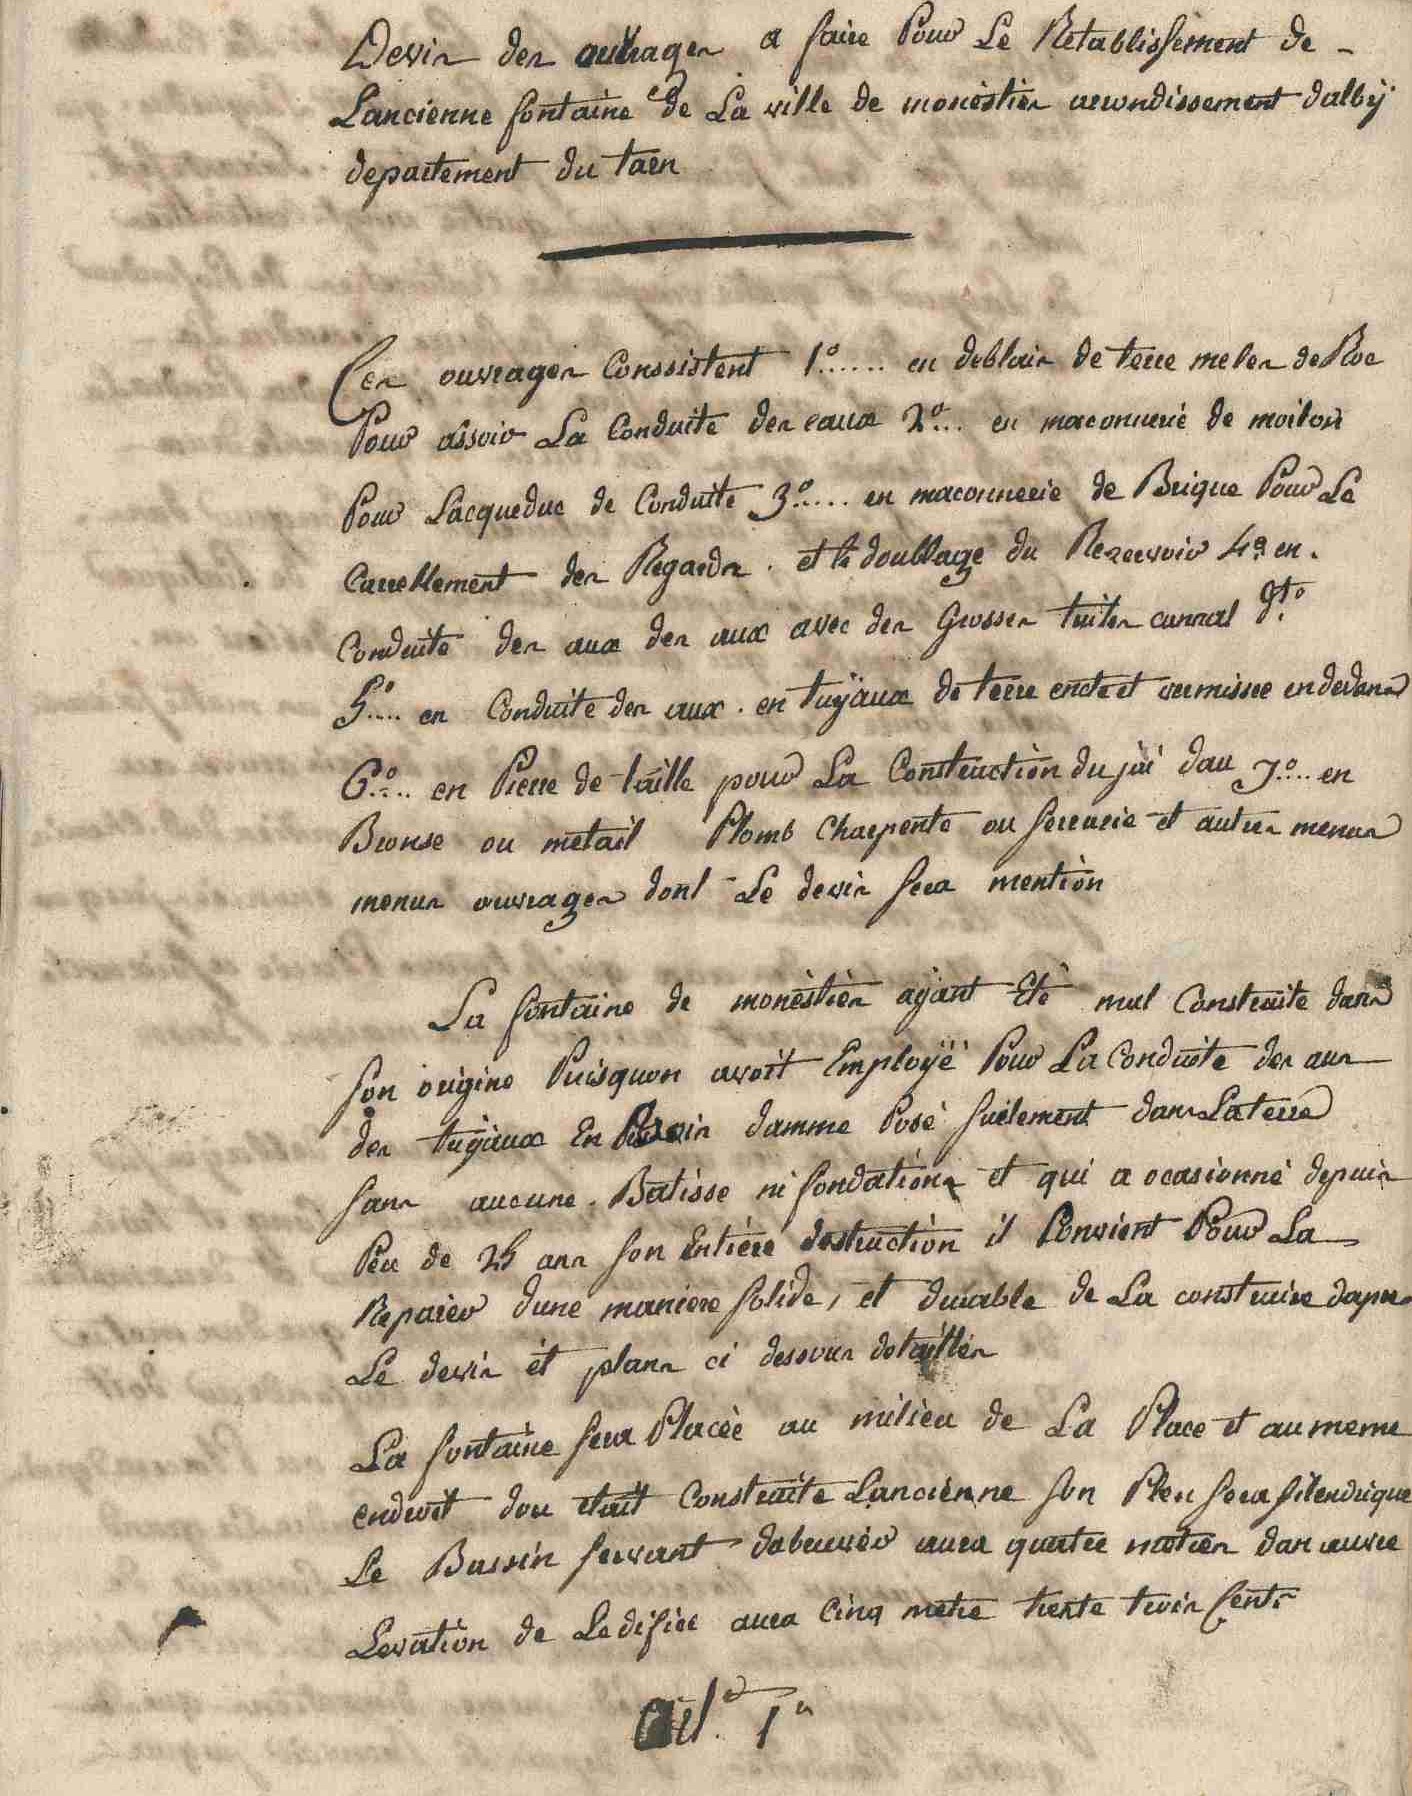 Devis des ouvrages a faire Pour Le Retablissement de -
Lancienne fontaine de La ville de monestier arrondissement dalby
departement du tarn
Ces ouvrages Conssistent 1°...... en deblais de terre meles de Roc
Pour assoir La Conduite des eaux 2°... en maconnerie de moilon
Pour Lacqueduc de Conduite 3°..... en maconnerie de Brique Pour Le
Carrellement des Regards . et le doublage du Rezervoir 4° en .
Conduite des aux des aux avec des Grosses tuiles cannal dto
5°.... en Conduite des aux . en tuÿaux de terre cuite et vernissee en dedans
6°.... en Pierre de taille pour La Construction du jai dau 7°.... en
Bronse ou metail Plomb Charpente ou serrurie et autres menus
menus ouvrages dont Le devis fera mention
La fontaine de monèstièr aÿant Eté mal Construite dans
son origine Puisquon avoit Employëé Pour La Conduite des aux
des tuÿaux En damme Posé sulement dans La terre
sans aucune . Batisse ni fondations et qui a ocasionné depuis
Peu de 25 ans son Entiere destruction il Convient Pour La
Reparer dune maniere solide , et durable de La construire dapres
Le devis èt plans ci dessous detailles
La fontaine sera Placèè au milieu de La Place et au meme
endroit dou etait Construite Lanciènne son Plan sera silendrique
Le Bassin servant dabeuvèr aura quatre metres dan uvre
Levation de Ledifice aura Cinq metre trente trois Cents
Art. 1er